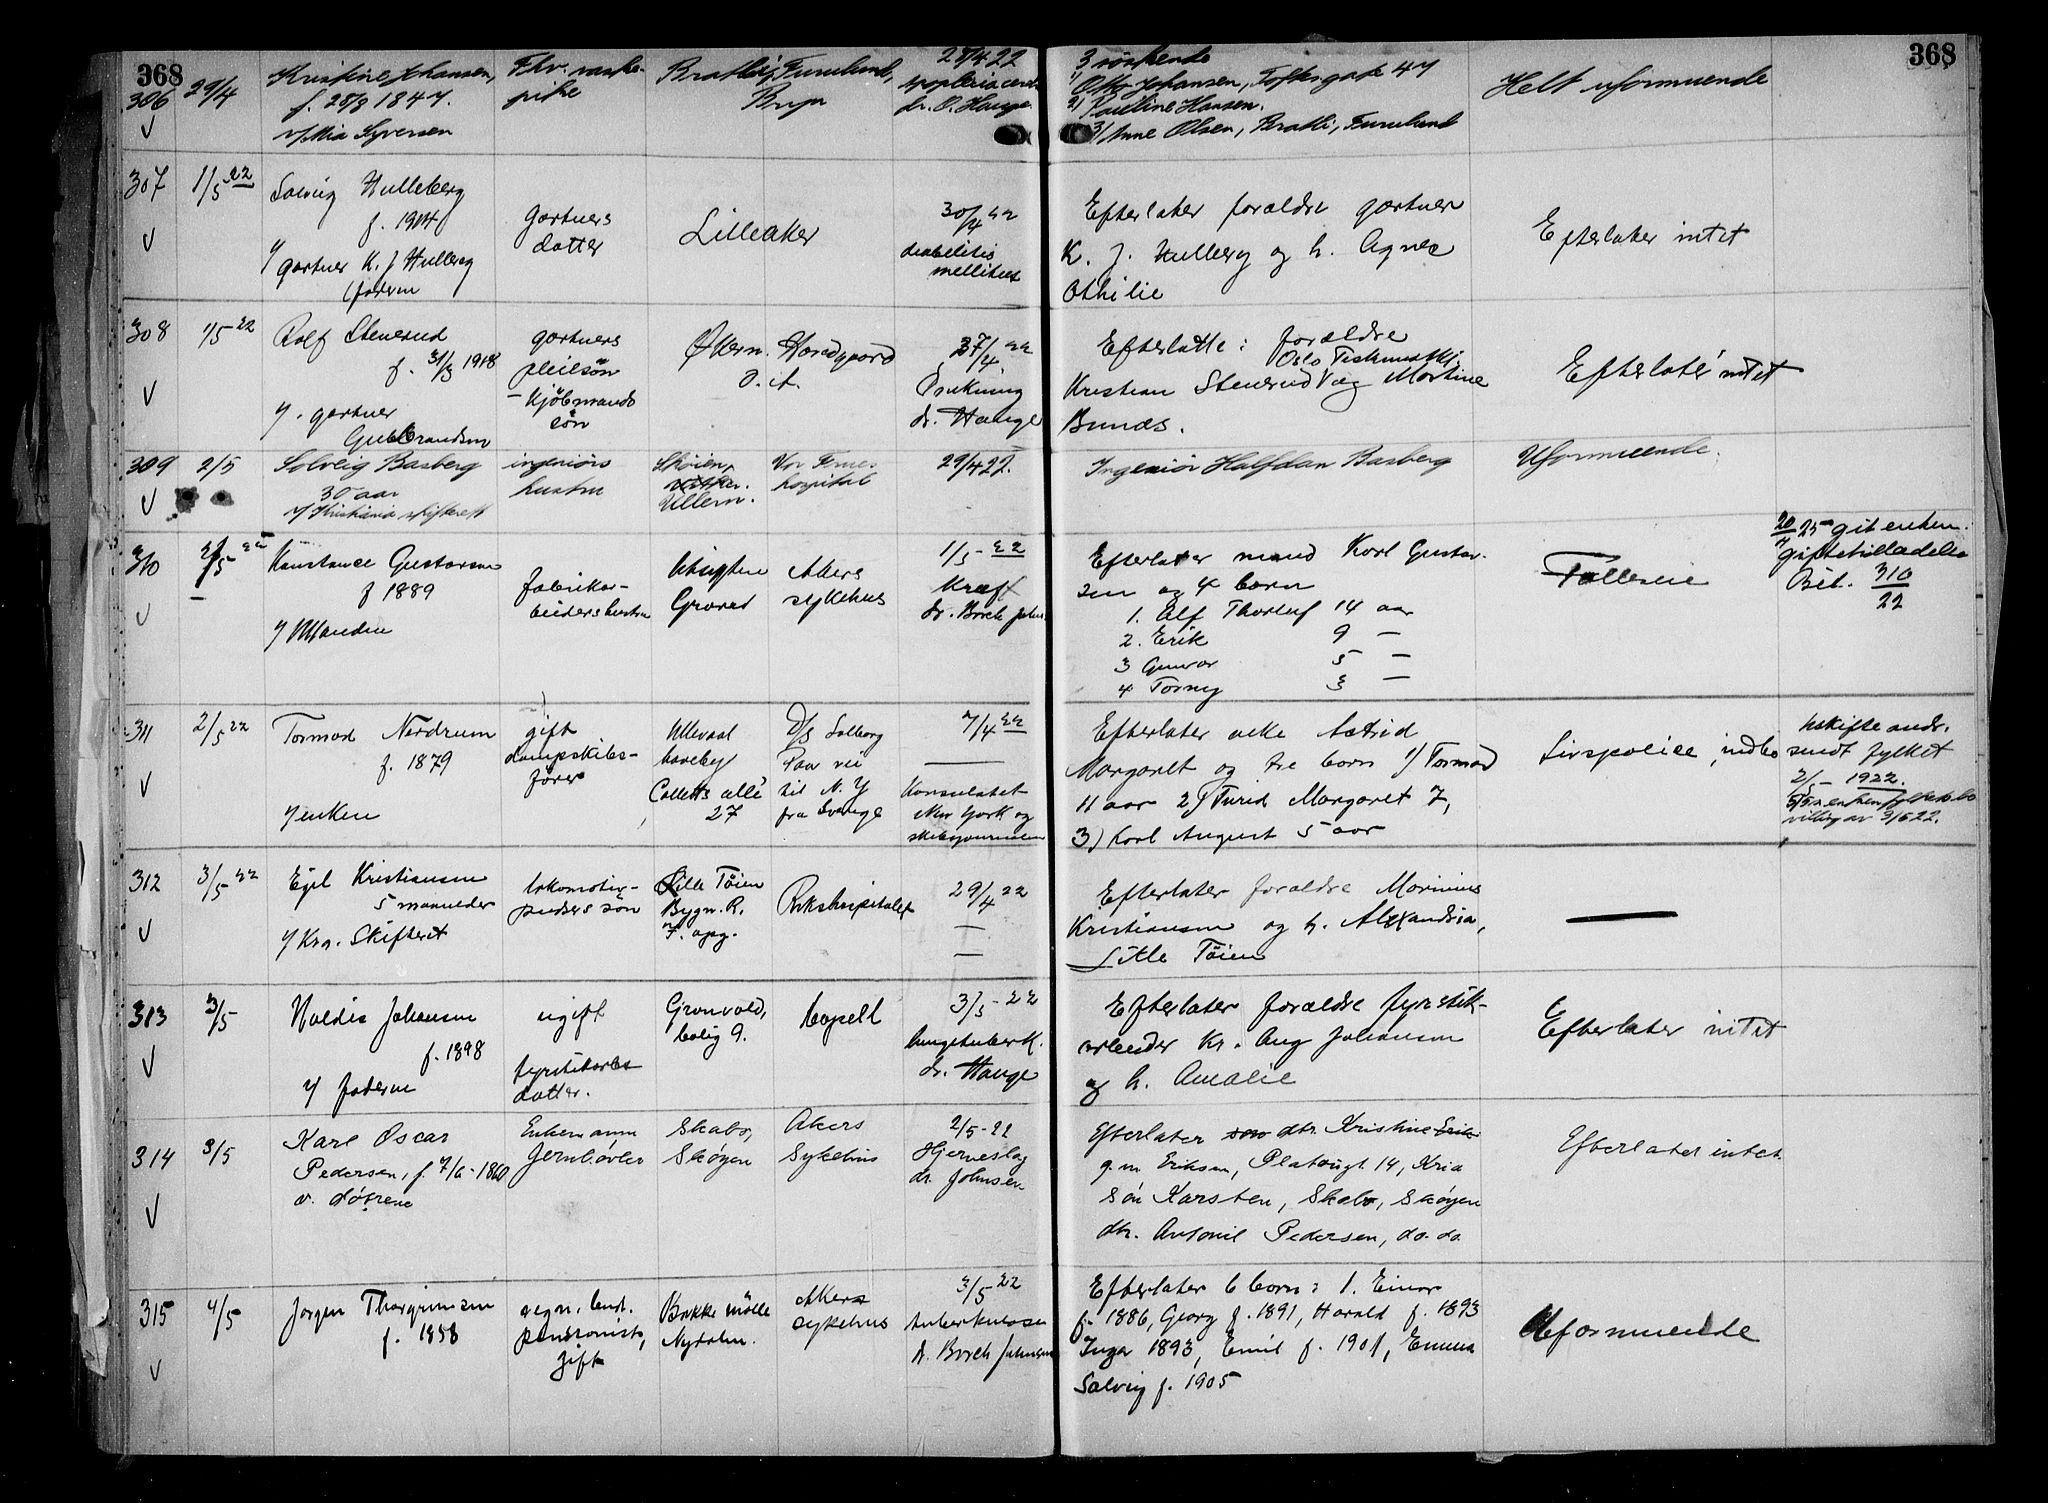 368
368
306
29/4
Kristine Johansen,
f. 28/8 1847.
v/ Mia Syversen
Fhv. vaske-
pike
Bratli, Furulund,
Bryn
28/4 22
dr. O. Hauge
3 søskende
1) Otto Johansen, Toftesgade 47
2) Pauline Hansen.
3) Anne Olsen, Bratli, Furulund
Helt uformuende
307
1/5 22
Solveig Hulleberg
f. 1904
v/ gartner K. J. Hulleberg
faderen
Gartners
datter
Lilleaker
30/4 22
diabetitis
mellitus
Efterlater forældre gartner
K. J. Hulleberg og h. Agnes
Othilie
Efterlater intet
308
1/5 22
Rolf Stenerud
f. 31/3 1918
v/. gartner
Gulbrandsen
gartners
pleiesøn
- kjøbmands
søn
Økern.
Ø. A.
27/4 22
Drukning
dr. Hauge
Efterlatte: forældre
Kristian Stenerud og Martine
Bunæs.
Efterlater intet
309
2/5
Solveig Basberg
30 aar
v/ Kristiania skifterett
ingeniørs
hustru
Skøien,
Ullern.
Vor Frues
hospital
29/4 22.
Ingeniør Halfdan Basberg
Uformuende.
310
2/5 22
Konstance Gustavsen
f 1889
v/ Manden
fabrikar-
beidershustru
Utsigten
Grorud
Akers
sykehus
1/5 - 22
Kræft
dr. Borch Johns.
Efterlater mand Karl Gustav-
sen og 4 børn
1. Alf Thorleif 14 aar
2. Erik 9 -
3 Gunvor 5 -
4 Torny 3 -
Fælleseie
20/4 25 git enkem.
giftetilladelse
Bil. 310/22
311
2/5 22
Tormod Nordrum
f. 1879
v/ enken
gift
dampskibs-
fører
Ullevaal
haveby
Colletts allé
27
D/S Solborg
Paa vei
til N. Y
fra
7/4 22
Konsulatet
New York og
skibsjournalen
Efterlater enke Astrid
Margaret og tre børn 1) Tormod
11 aar 2) Turid Margaret 7,
3) Karl August 5 aar
Livspolice, indbo
Uskifte andr.
sendt fylket
2/5 - 1922.
312
3/5 22
Egil Kristiansen
5 maaneder
v/ Kra. Skifteret
lokomotiv-
pudsers søn
Lille Tøien
Bygn. R.
7. opg.
Rikshospitalet
29/4 22
Efterlater forældre Marinius
Kristiansen og h. Alexandria,
Lille Tøien
313
3/5
Haldis Johansen
f. 1898
v/ faderen
ugift
fyrstikarb.
datter.
Grønvold,
bolig 9.
Capell
3/5 - 22
lungetuberk.
dr. Hauge
Efterlater forældre fyrstik-
arbeider Kr. Aug Johansen
og h. Amalie
Efterlater intet
314
3/5
Karl Oscar
Pedersen, f. 7/6 - 1860
v. døtrene
Enkemann
Jernhøvler
Skabo,
Skøyen
Akers
Sykehus
2/5 - 22
Hjerneslag
dr. Johnsen
Efterlater dtr. Kristine
g.m Eriksen, Platougt 14, Kria
Søn Karsten, Skabo, Skøyen
dtr. Antonie Pedersen, do. do.
Efterlater intet.
315
4/5
Jørgen Thorgrimsen
f. 1858
pensionist,
gift
Bakke mølle
Nydalen.
Akers
sykehus
3/5 22
tuberkulose
dr. Borch Johnsen
Efterlater 6 børn: 1. Einar
f. 1886, Georg f. 1891, Harald f. 1893
Inga 1893, Emil f. 1901, Emma
Solveig f. 1905
Uformuende